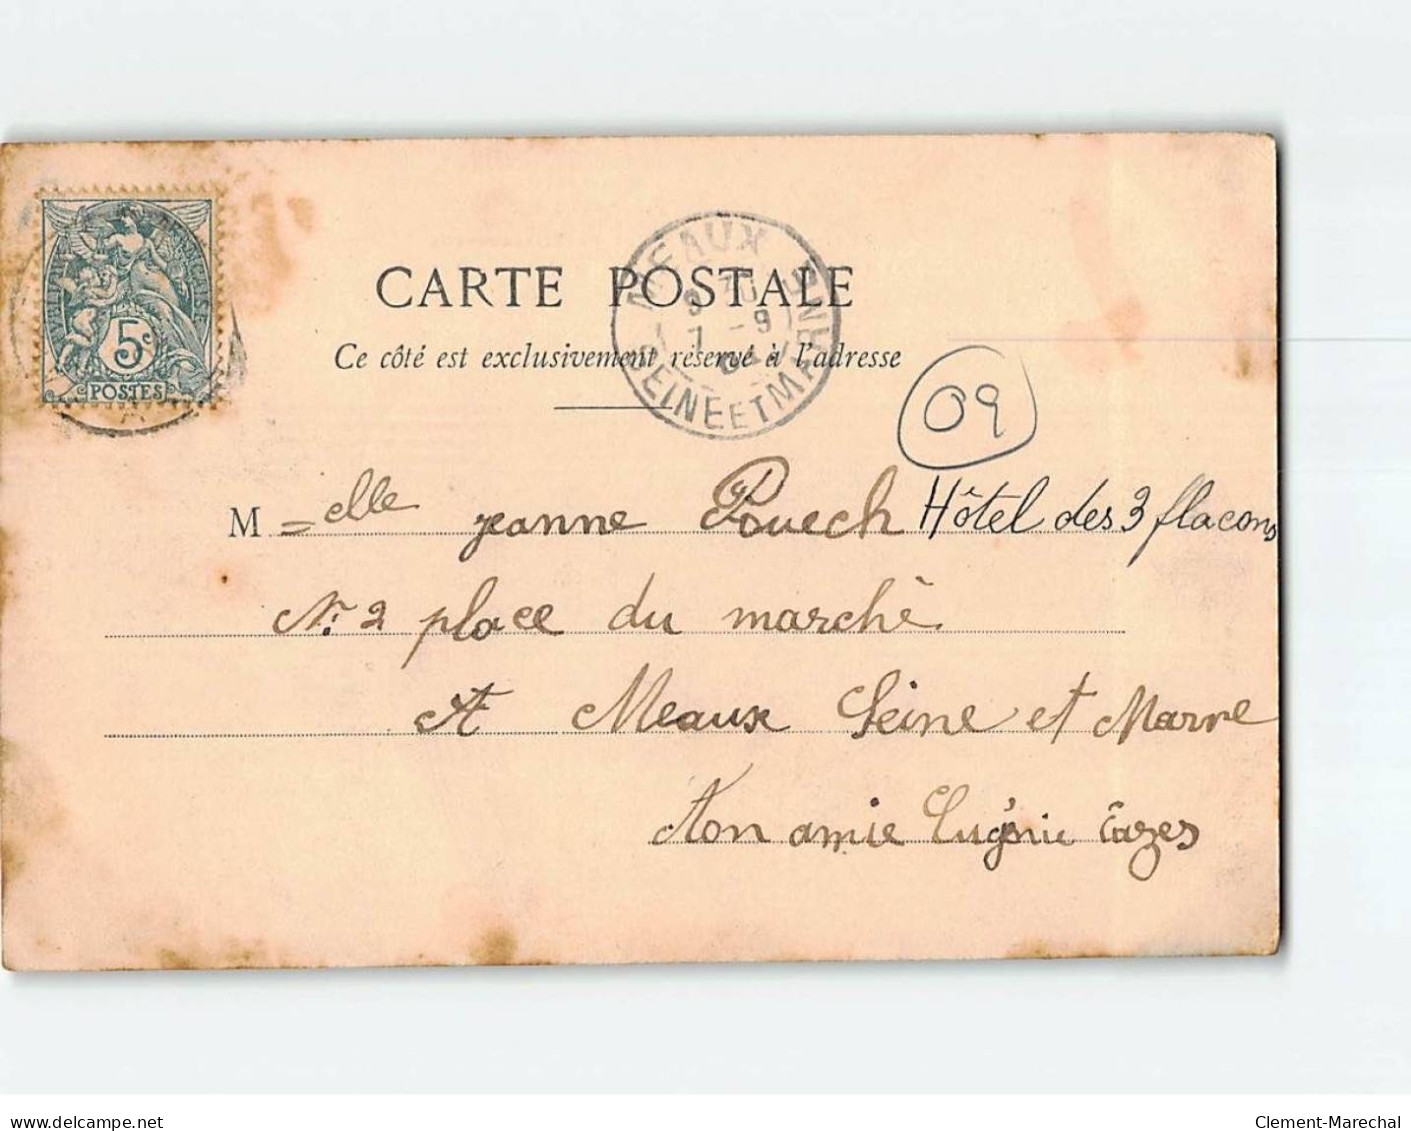 CARTE POSTALE
Ce côté est exclusivement réservé à l'adresse
MEAUX
7 -9
SEINE ET MARNE
5c
POSTES
09
M elle jeanne Pouech Hôtel des 3 flacons
No: 2 place du marché
A Meaux Seine et Marne
Ton amie Eugénie Cazes
delcampe.net
Clement-Marechal